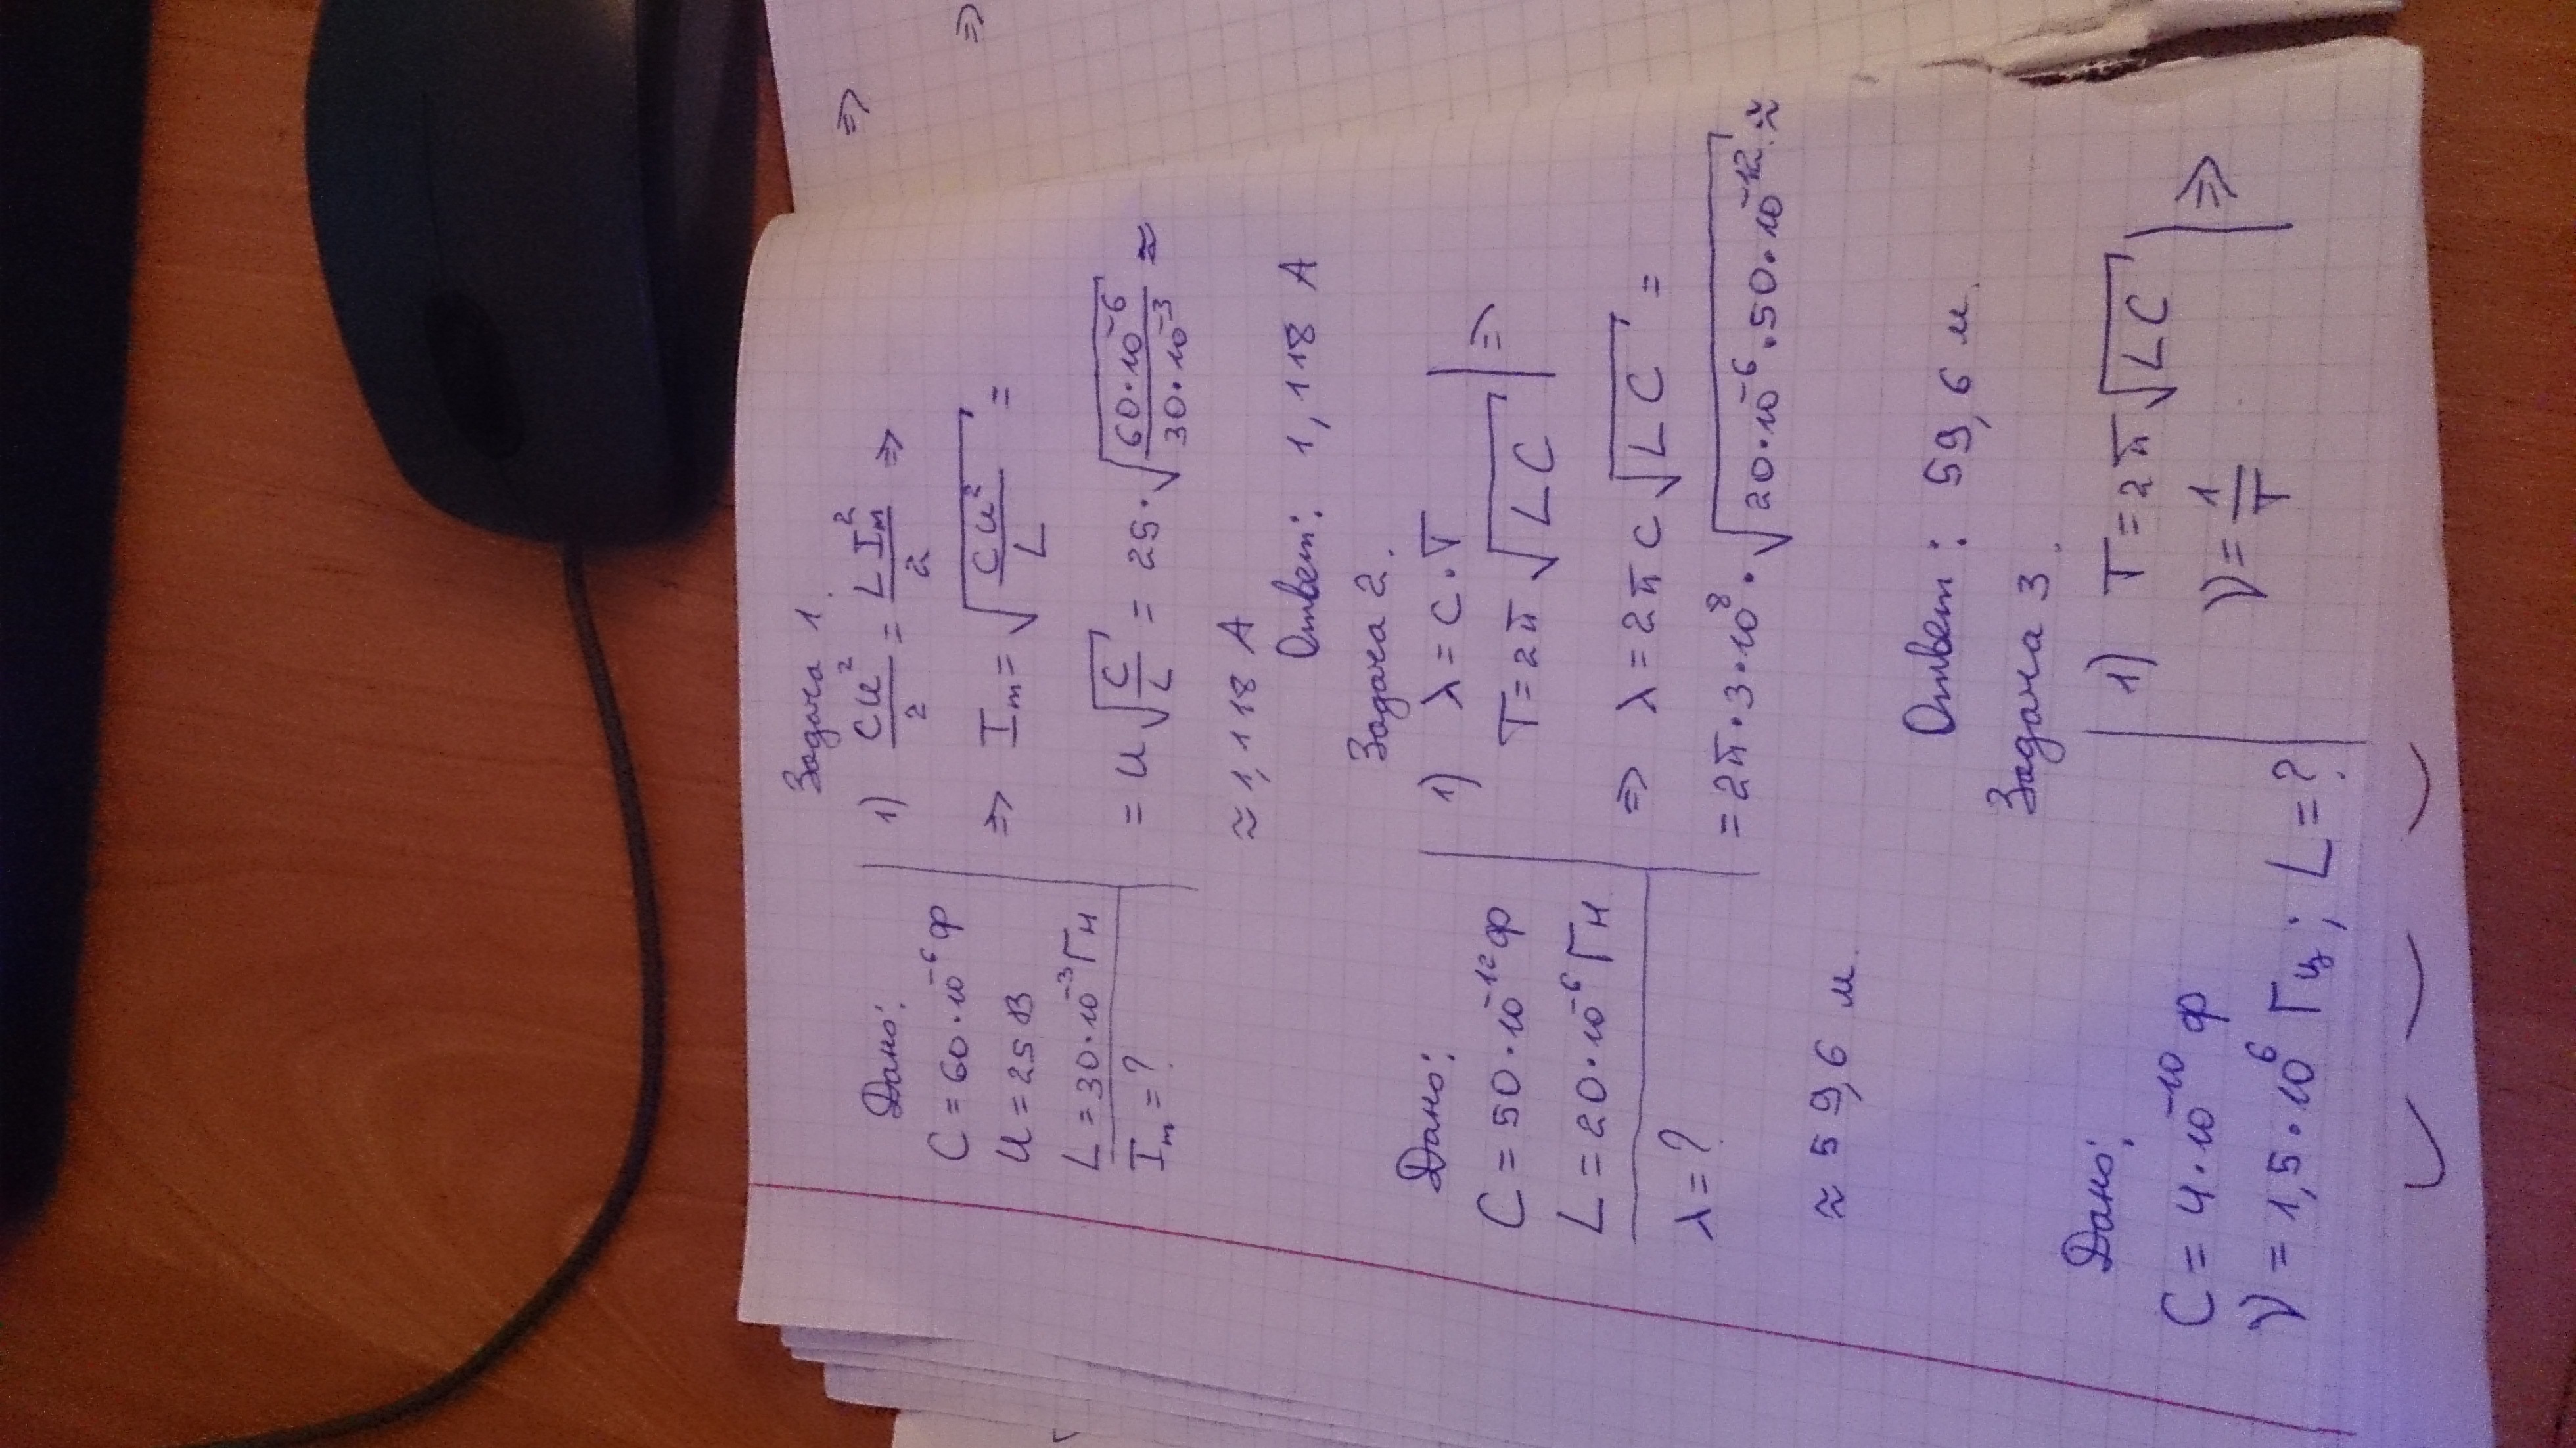 Задача 1.
Дано:
C = 60·10⁻⁶ Ф
U = 25 В
L = 30·10⁻³ Гн
Iₘ = ?
1) CU²/2 = LIₘ²/2 ⇒
⇒ Iₘ = √(CU²/L) =
= U√(C/L) = 25·√(60·10⁻⁶/30·10⁻³) ≈
≈ 1,118 А
Ответ: 1,118 А
Задача 2.
Дано:
C = 50·10⁻¹² Ф
L = 20·10⁻⁶ Гн
λ = ?
1) λ = c·T
T = 2π√LC | ⇒
⇒ λ = 2πc√LC =
= 2π·3·10⁸·√20·10⁻⁶·50·10⁻¹² ≈
≈ 59,6 м.
Ответ: 59,6 м.
Задача 3.
Дано:
C = 4·10⁻¹⁰ Ф
ν = 1,5·10⁶ Гц; L = ?
1) T = 2π√LC
ν = 1/T | ⇒
⇒
⇒